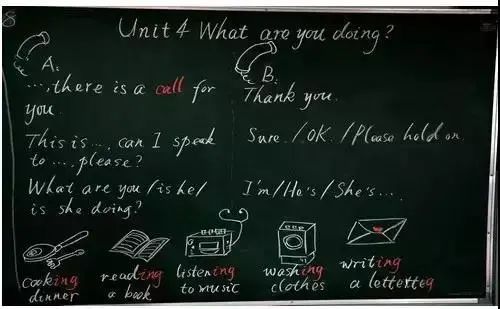 8
Unit 4 What are you doing?
A:
..., there is a call for
you.
This is ..., can I speak
to ..., please?
What are you / is he /
is she doing?
B:
Thank you.
Sure. / OK. / Please hold on.
I'm / He's / She's ...
cooking
dinner
reading
a book
listening
to music
washing
clothes
writing
a letterteg